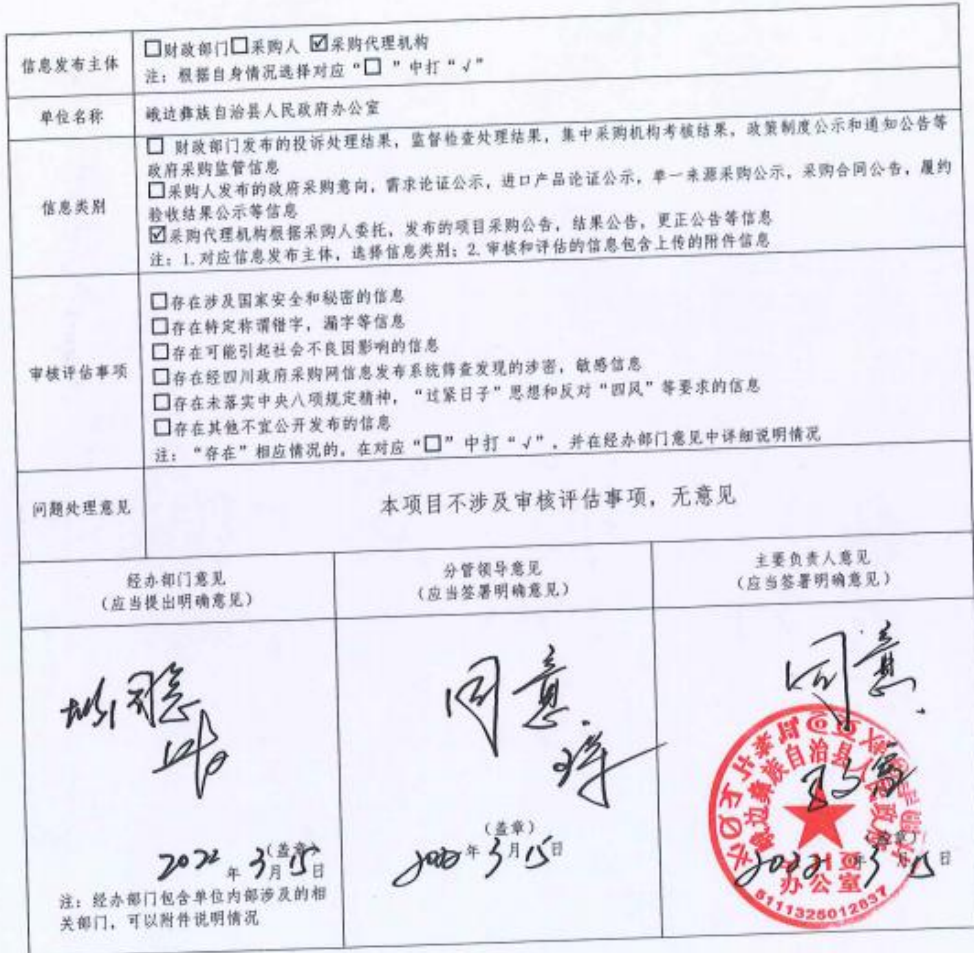 信息发布主体
□财政部门□采购人 ☑采购代理机构
注：根据自身情况选择对应“□ ”中打“√”
单位名称
峨边彝族自治县人民政府办公室
信息类别
□ 财政部门发布的投诉处理结果，监督检查处理结果，集中采购机构考核结果，政策制度公示和通知公告等
政府采购监管信息
□采购人发布的政府采购意向，需求论证公示，进口产品论证公示，单一来源采购公示，采购合同公告，履约
验收结果公示等信息
☑采购代理机构根据采购人委托，发布的项目采购公告，结果公告，更正公告等信息
注：1.对应信息发布主体，选择信息类别；2.审核和评估的信息包含上传的附件信息
审核评估事项
□存在涉及国家安全和秘密的信息
□存在特定称谓错字，漏字等信息
□存在可能引起社会不良因影响的信息
□存在经四川政府采购网信息发布系统筛查发现的涉密，敏感信息
□存在未落实中央八项规定精神，“过紧日子”思想和反对“四风”等要求的信息
□存在其他不宜公开发布的信息
注：“存在”相应情况的，在对应“□”中打“√”，并在经办部门意见中详细说明情况
问题处理意见
本项目不涉及审核评估事项，无意见
经办部门意见
（应当提出明确意见）
分管领导意见
（应当签署明确意见）
主要负责人意见
（应当签署明确意见）
同意
（盖章）
2022年3月15日
注：经办部门包含单位内部涉及的相
关部门，可以附件说明情况
同意
（盖章）
年3月15日
同意
（盖章）
2022年3月15日
峨边彝族自治县人民政府
办公室
5111325012837